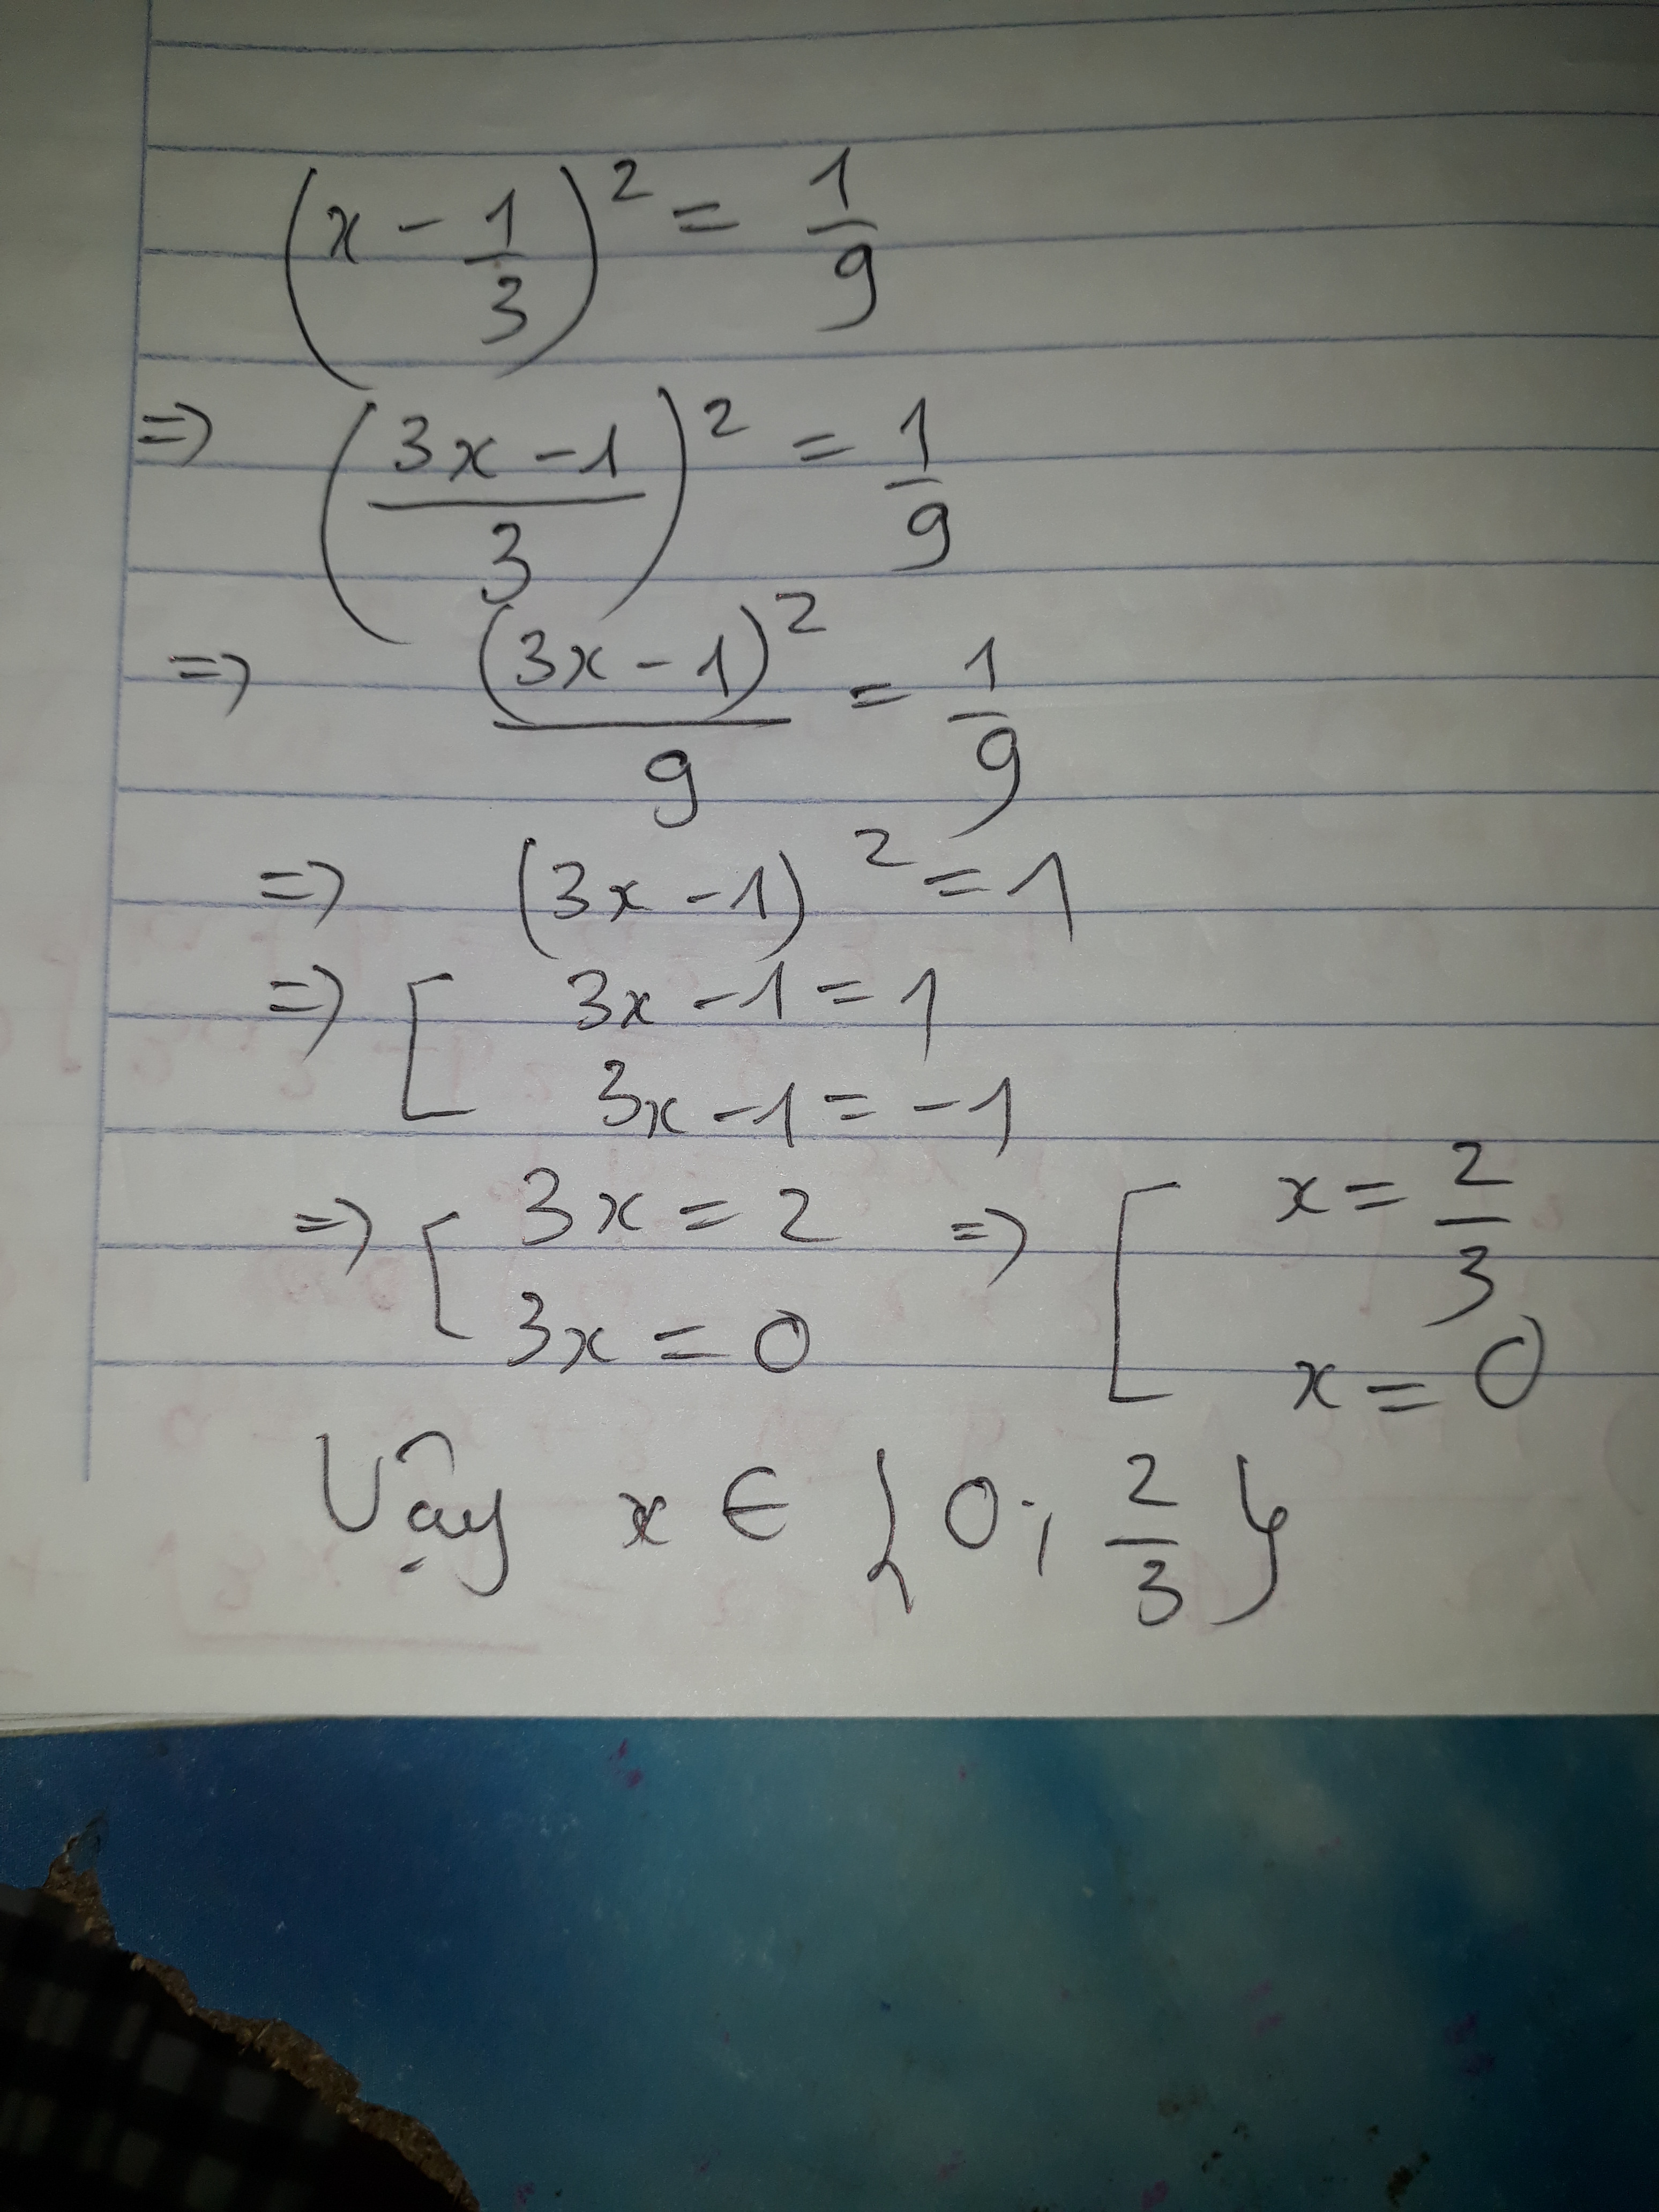 (x - 1/3)² = 1/9
=> ((3x - 1)/3)² = 1/9
=> (3x - 1)²/9 = 1/9
=> (3x - 1)² = 1
=> [ 3x - 1 = 1
3x - 1 = -1
=> [ 3x = 2 => [ x = 2/3
3x = 0 x = 0
Vậy x ∈ {0; 2/3}